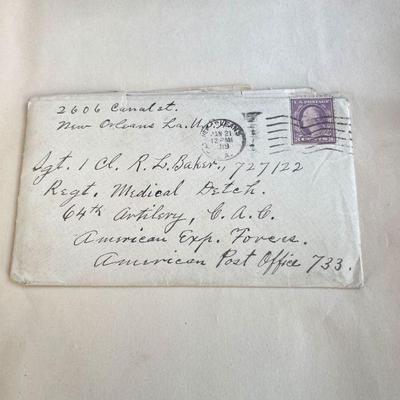 2606 Canal st.
New Orleans La. U.
JAN 21
12 PM
1919
LA.
U.S. POSTAGE
Sgt. 1 Cl. R. L. Baker, 727122
Regt. Medical Detch.
64th Artilery, C.A.C.
American Exp. Forces.
American Post Office 733.